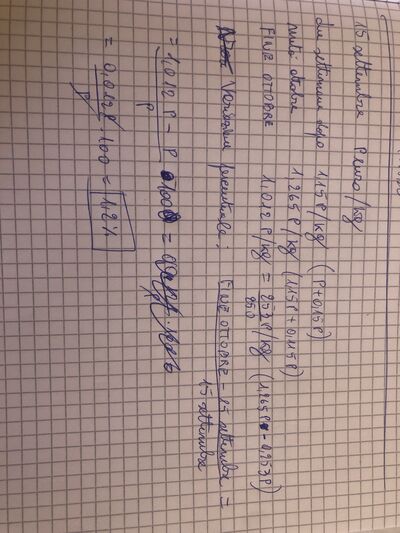 15 settembre P euro/kg
due settimane dopo 1,15P/kg (P+0,15P)
metà ottobre 1,265P/kg (1,15P+0,115P)
FINE OTTOBRE 1,012P/kg = 253/250 P/kg (1,265P-0,253P)
Variazione percentuale: FINE OTTOBRE - 15 settembre / 15 settembre =
= 1,012P - P / P · 100 =
= 0,012P / P · 100 = 1,2%